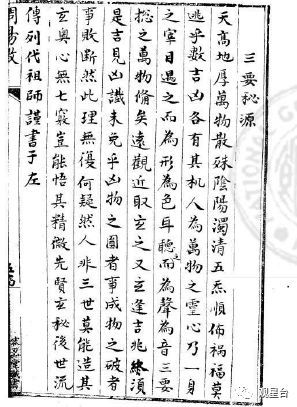 三要秘源
天高地厚萬物散殊陰陽濁清五炁順佈禍福莫
逃乎數吉凶各有其机人為萬物之靈心乃一身
之宰目遇之而為形為色耳聽之而為聲為音三要
捴之萬物備矣遠觀近取玄之又玄逢吉兆終須
是吉見凶讖未免乎凶物之圖者事成物之破者
事敗断然此理無復何疑然人非三世莫能造其
玄奥心無七竅豈能悟其精微先賢玄秘後世流
傳列代祖師謹書于左
周易
观星台